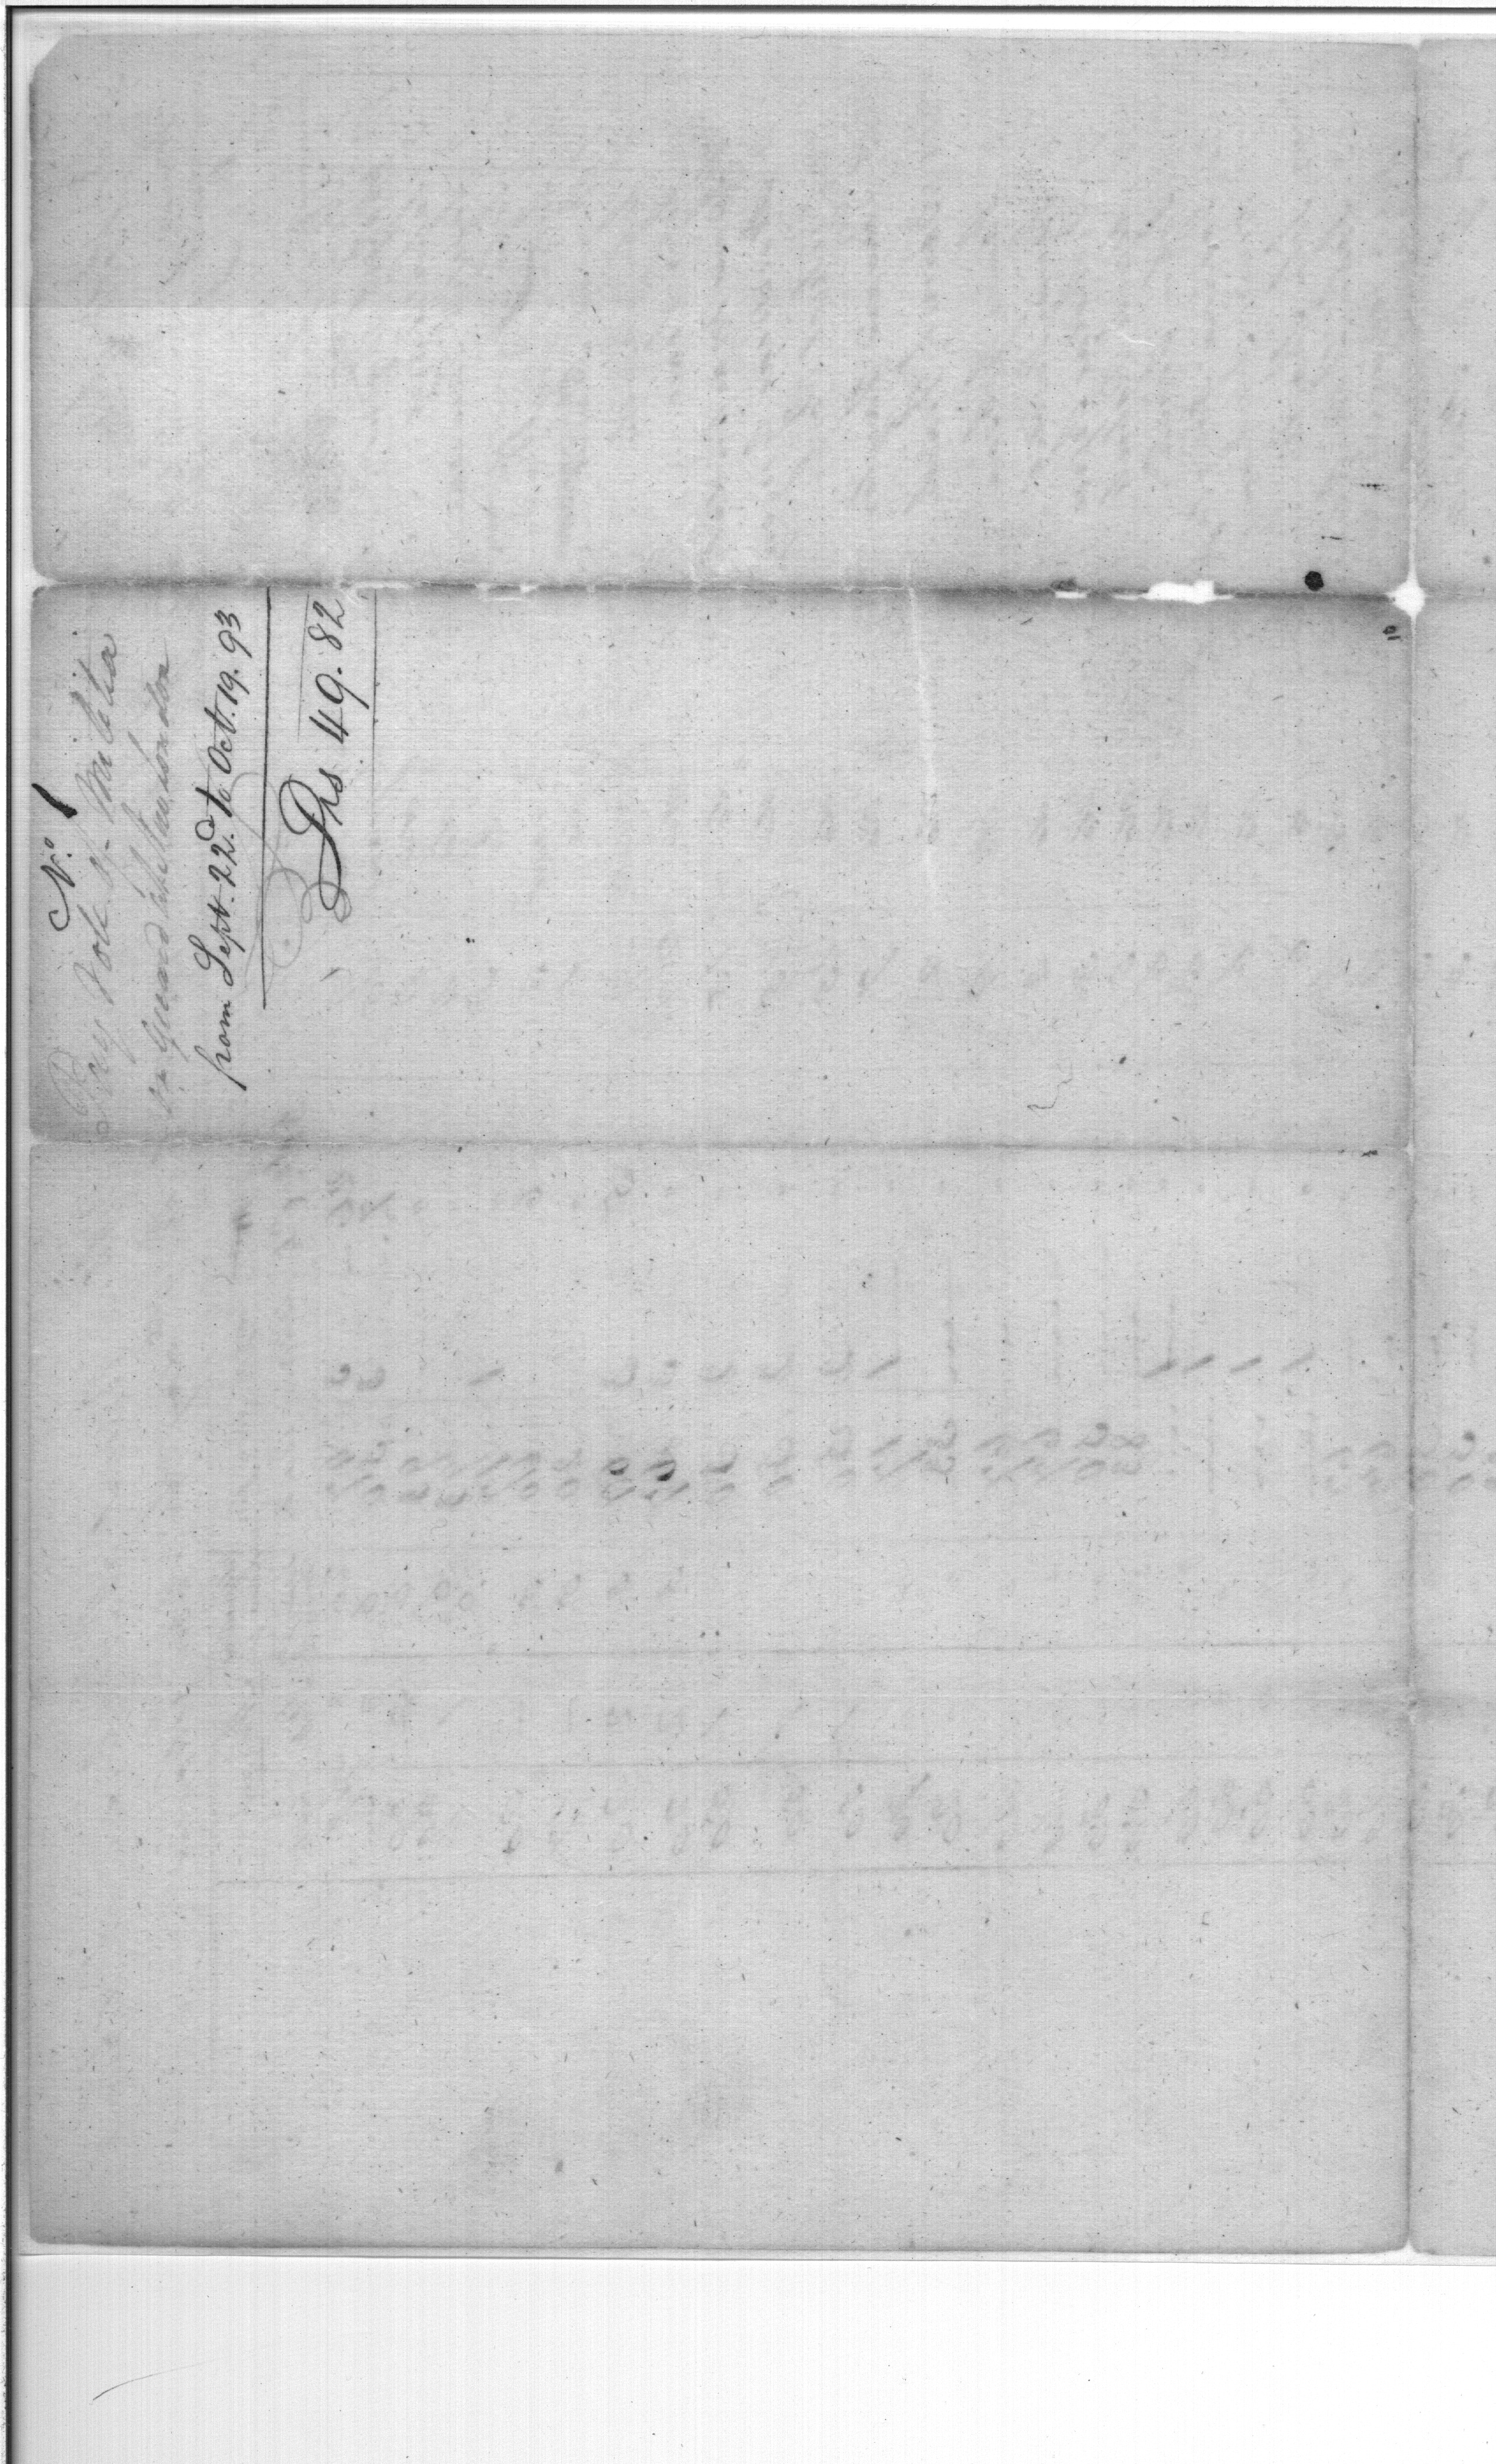 No. 1
Pay Role of Militia
on Guard
from Sept. 22d. to Oct. 19. 93
Drs 49.82